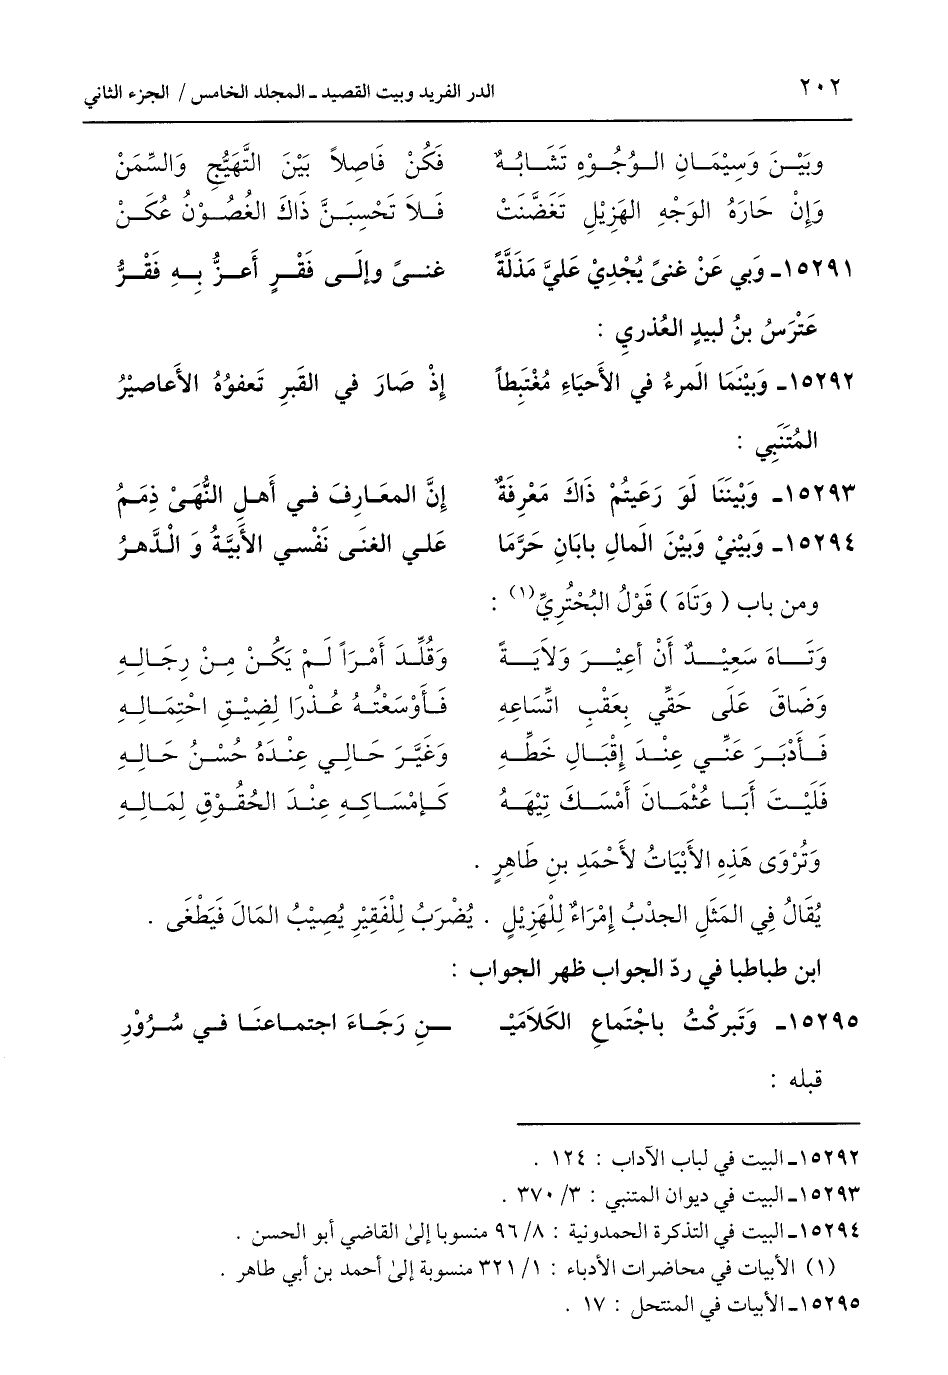 ٢٠٢ الدر الفريد وبيت القصيد ـ المجلد الخامس / الجزء الثاني
وبَيْـنَ وَسِيْمَـانِ الـوُجُـوْهِ تَشَـابُـهٌ فَكُنْ فَاصِلاً بَيْنَ التَّهَيُّجِ وَالسِّمَنْ
وَإِنْ حَارَهُ الوَجْهِ الهَزِيْلِ تَغَضَّنَتْ فَـلاَ تَحْسِبَـنَّ ذَاكَ الغُصُـوْنُ عُكَـنْ
١٥٢٩١ـ وَبي عَنْ غنىً يُجْدِيْ عَليَّ مَذَلَّةً غنـىً وإلَـى فَقْـرٍ أَعـزُّ بِـهِ فَقْـرُ
عَتْرَسُ بنُ لبيدٍ العُذرِيِ :
١٥٢٩٢ـ وَبَيْنَمَا المرءُ في الأَحيَاءِ مُغْتَبِطاً إذْ صَارَ في القَبرِ تَعفوُهُ الأَعاصيْرُ
المُتَنَبِي :
١٥٢٩٣ـ وَبيْنَنَا لَو رَعَيتُمْ ذَاكَ مَعْرِفَةٌ إنَّ المعَـارِفَ فـي أَهـلِ النُّهَىْ ذِمَـمُ
١٥٢٩٤ـ وَبَيْنيْ وَبَيْنَ المالِ بابَانِ حَرَّمَا عَلـي الغنَى نَفْسي الأَبيَّةُ وَ الْدَّهـرُ
ومن باب ( وَتَاهَ ) قَوْلُ البُحْتُرِيِّ(١) :
وَتَــاهَ سَعِيْــدٌ أَنْ أعِيْــرَ وَلاَيَــةً وَقُلِّـدَ أَمْـرَاً لَـمْ يَكُـنْ مِـنْ رِجَالِـهِ
وَضَاقَ عَلَى حَقِّي بِعَقْبِ اتِّسَاعِهِ فَـأَوْسَعْتُـهُ عُـذْرَا لِضِيْـقِ احْتِمَـالِـهِ
فَـأَدْبَـرَ عَنِّـي عِنْـدَ إقْبَـالِ خَطِّـهِ وَغَيَّـرَ حَـالِي عِنْـدَهُ حُسْـنُ حَـالِـهِ
فَلَيْـتَ أَبَـا عُثْمَـانَ أَمْسَـكَ تِيْهَـهُ كَـإمْسَـاكِـهِ عِنْـدَ الحُقُـوْقِ لِمَـالِـهِ
وَتُرْوَى هَذِهِ الأَبْيَاتُ لأَحْمَدِ بنِ طَاهِرٍ .
يُقَالُ فِي المَثَلِ الجدْبُ إمْرَاءٌ لِلْهَزِيْلِ . يُضْرَبُ لِلْفَقِيْرِ يُصِيْبُ المَالَ فَيَطْغَى .
ابن طباطبا في ردّ الجواب ظهر الجواب :
١٥٢٩٥ـ وَتَبركْتُ باجْتماعِ الكَلاَمَيْـ ـنِ رَجَـاءَ اجتمـاعنَـا فـي سُـرُوْرِ
قبله :
١٥٢٩٢ـ البيت في لباب الآداب : ١٢٤ .
١٥٢٩٣ـ البيت في ديوان المتنبي : ٣/ ٣٧٠ .
١٥٢٩٤ـ البيت في التذكرة الحمدونية : ٨/ ٩٦ منسوبا إلى القاضي أبو الحسن .
(١) الأبيات في محاضرات الأدباء : ١/ ٣٢١ منسوبة إلى أحمد بن أبي طاهر .
١٥٢٩٥ـ الأبيات في المنتحل : ١٧ .